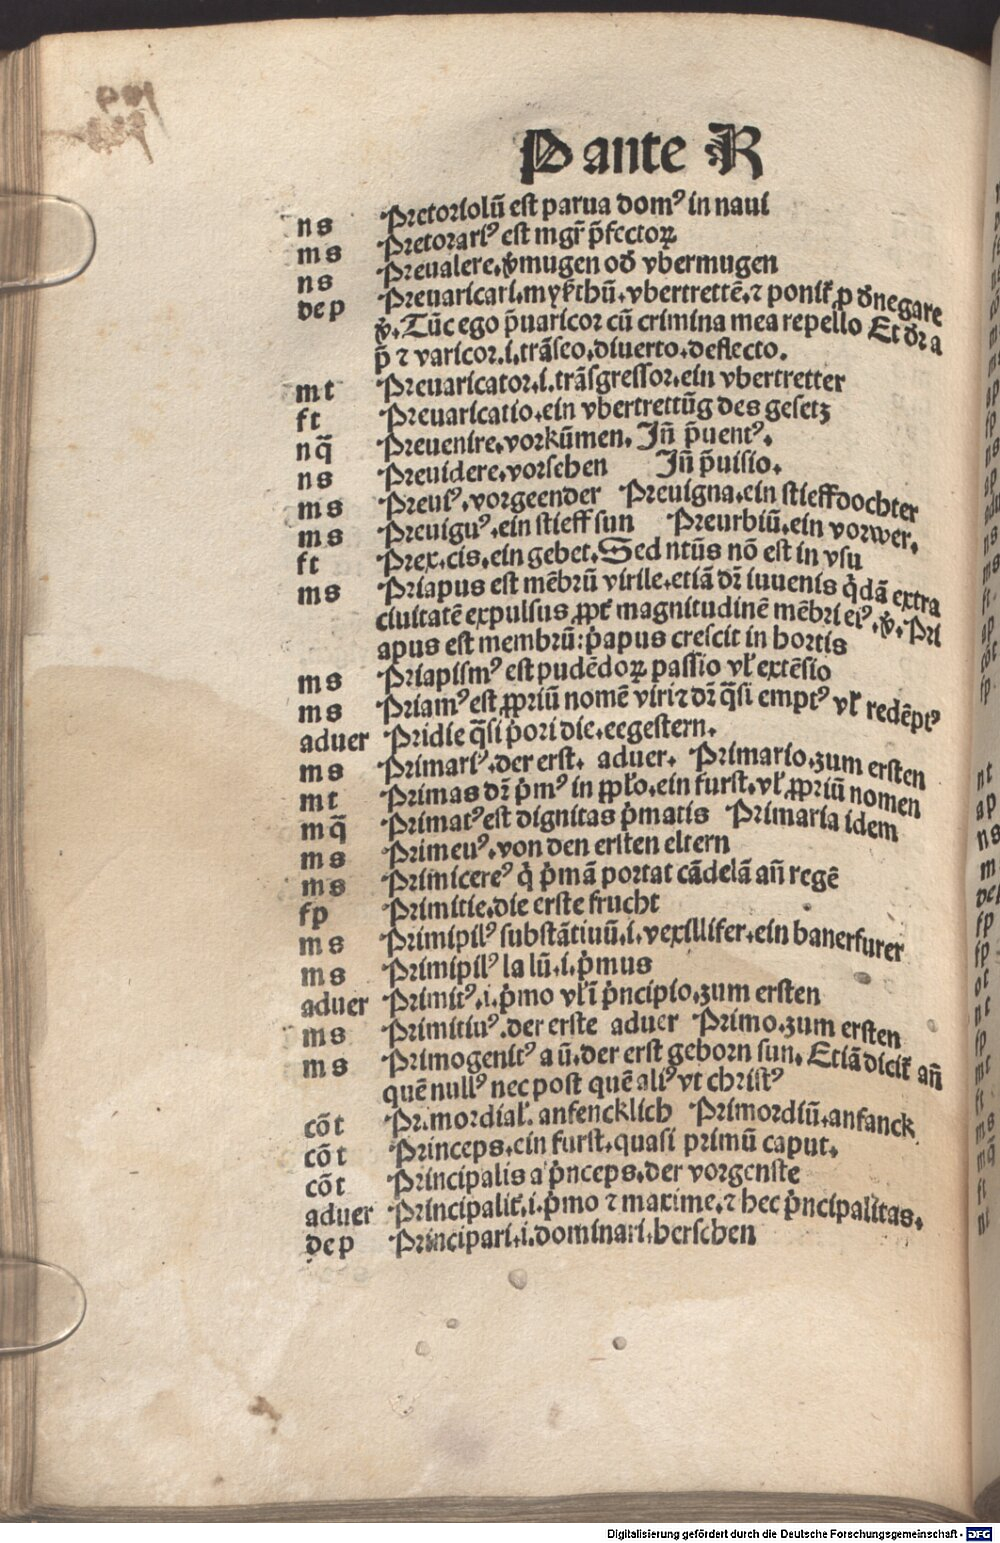 P ante R
ns Pretoriolū est parua domꝰ in naui
ms Pretorariꝰ est mgr̄ p̄fectoꝝ
ns Preualere. v̾mugen od̾ vbermugen
dep Preuaricari. vbertrettē. ⁊ ponit᷑ ꝓ d̾negare
v̾. Tūc ego p̄uaricor cū crimina mea repello Et dr̄ a
p̄ ⁊ varicor. i. trāseo. diuerto. deflecto.
mt Preuaricator. i. trāsgressor. ein vbertretter
ft Preuaricatio. ein vbertrettūg des gesetz
nq̄ Preuenire. vorkūmen. Jn̄ p̄uentꝰ.
ns Preuidere. vorsehen Jn̄ p̄uisio.
ms Preuiꝰ. vorgeender Preuigna. ein stieffdochter
ms Preuiguꝰ. ein stieff sun Preurbiū. ein vorwer.
ft Prex. cis. ein gebet. Sed ntūs nō est in vsu
ms Priapus est mēbrū virile. etiā dr̄ iuuenis q̇dā extra
ciuitatē expulsus ꝓpt᷑ magnitudinē mēbri eiꝰ. v̾. Pri
apus est membrū: ṗapus crescit in hortis
ms Priapismꝰ est pudēdoꝝ passio vl̄ extēsio
ms Priamꝰ est ꝓpriū nomē viri ⁊ dr̄ q̄si emptꝰ vl̄ redēptꝰ
aduer Pridie q̄si ṗori die. eegestern.
ms Primariꝰ. der erst. aduer. Primario. zum ersten
mt Primas dr̄ ṗmꝰ in ꝓpl̄o. ein furst. vl̄ ꝓpriū nomen
mq̄ Primatꝰ est dignitas ṗmatis Primaria idem
ms Primeuꝰ. von den ersten eltern
ms Primicereꝰ q̇ ṗmā portat cādelā an̄ regē
fp Primitie. die erste frucht
ms Primipilꝰ substātiuū. i. vexillifer. ein banerfurer
ms Primipilꝰ la lū. i. ṗmus
aduer Primitꝰ. i. ṗmo vl̄ ī ṗncipio. zum ersten
ms Primitiuꝰ. der erste aduer Primo. zum ersten
ms Primogenitꝰ a ū. der erst geborn sun. Etiā dicit᷑ an̄
quē nullꝰ nec post quē aliꝰ vt christꝰ
cōt Primordial̄. anfencklich Primordiū. anfanck
cōt Princeps. ein furst. quasi primū caput.
cōt Principalis a ṗnceps. der vorgenste
aduer Principalit᷑. i. ṗmo ⁊ maxime. ⁊ hec ṗncipalitas.
dep Principari. i. dominari. herschen
Digitalisierung gefördert durch die Deutsche Forschungsgemeinschaft - DFG